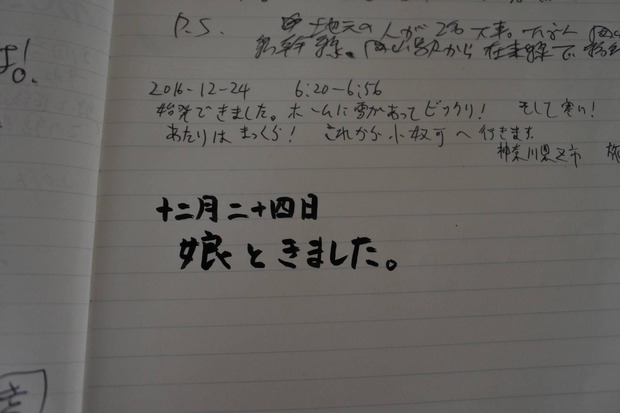 は。!
P.S. 地元の人が2名
新幹線。岡山駅から在来線で
2016-12-24 6:20-6:56
始発できました。ホームに雪があってビックリ! そして寒い!
あたりはまっくら! これから小奴可へ行きます
神奈川県 市
十二月二十四日
娘ときました。